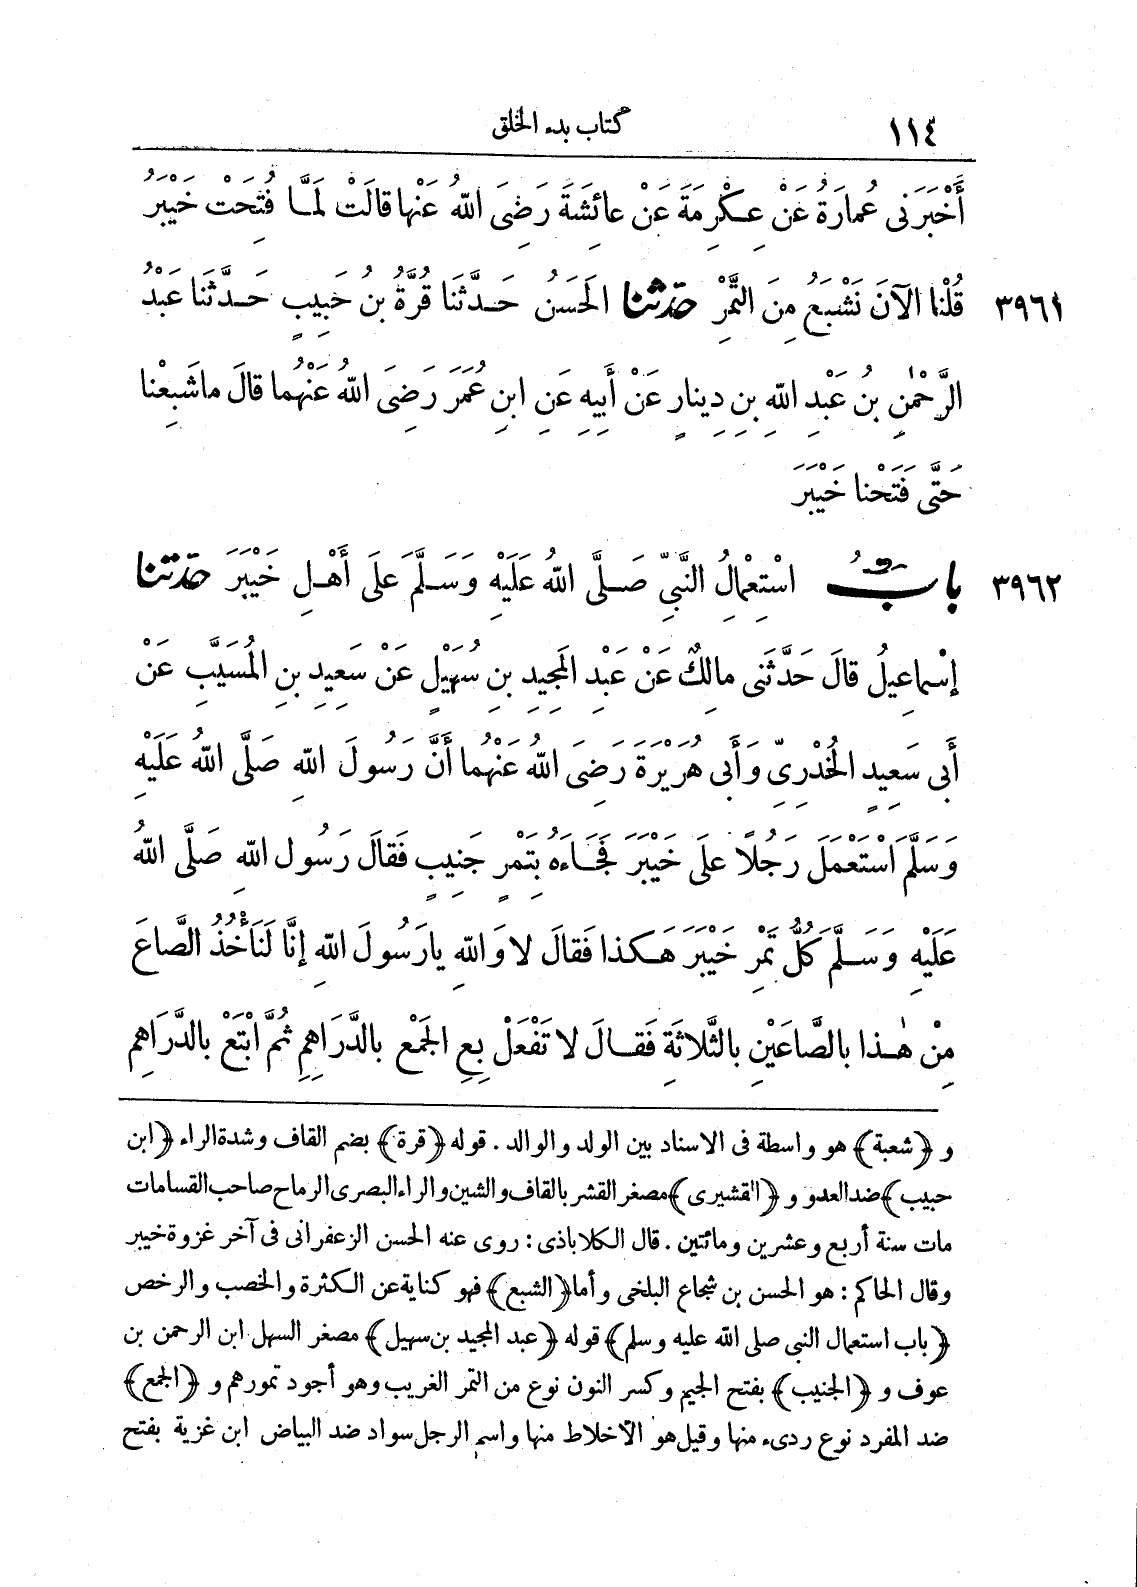 ١١٤ كتاب بدء الخلق
أَخْبَرَنِى عُمَارَةُ عَنْ عِكْرِمَةَ عَنْ عائِشَةَ رَضِىَ اللهُ عَنْها قالَتْ لَمَّا فُتِحَتْ خَيْبَرُ
٣٩٦١ قُلْنا الآنَ نَشْبَعُ مِنَ التَّمْرِ حَدَّثَنا الحَسَنُ حَدَّثَنَا قُرَّةُ بنُ حَبِيبٍ حَدَّثَنا عَبْدُ
الرَّحْمٰنِ بنُ عَبْدِ اللهِ بنِ دِينارٍ عَنْ أَبِيهِ عَنِ ابنِ عُمَرَ رَضِىَ اللهُ عَنْهُما قالَ ماشَبِعْنا
حَتَّى فَتَحْنا خَيْبَرَ
٣٩٦٢ بابُ اسْتِعْمالُ النَّبِىِّ صَلَّى اللهُ عَلَيْهِ وَسَلَّمَ عَلَى أَهْلِ خَيْبَرَ حَدَّثَنا
إسْماعِيلُ قالَ حَدَّثَنِى مالِكٌ عَنْ عَبْدِ المَجِيدِ بنِ سُهَيْلٍ عَنْ سَعِيدِ بنِ المُسَيَّبِ عَنْ
أَبِى سَعِيدٍ الخُدْرِىِّ وَأَبِى هُرَيْرَةَ رَضِىَ اللهُ عَنْهُما أَنَّ رَسُولَ اللهِ صَلَّى اللهُ عَلَيْهِ
وَسَلَّمَ اسْتَعْمَلَ رَجُلًا علَى خَيْبَرَ فَجَاءَهُ بِتَمْرٍ جَنِيبٍ فَقالَ رَسُول اللهِ صَلَّى اللهُ
عَلَيْهِ وَسَلَّمَ كُلُّ تَمْرِ خَيْبَرَ هَكذا فَقالَ لا وَاللهِ يارَسُولَ اللهِ إنَّا لَنَأْخُذُ الصَّاعَ
مِنْ هٰذا بالصَّاعَيْنِ بالثَّلاثَةِ فَقالَ لا تَفْعَلْ بِعِ الجَمْعَ بالدَّرَاهِمِ ثُمَّ ابْتَعْ بالدَّرَاهِمِ
و ﴿شعبة﴾ هو واسطة فى الاسناد بين الولد والوالد . قوله ﴿قرة﴾ بضم القاف وشدة الراء ﴿ابن
حبيب﴾ ضد العدو و ﴿القشيرى﴾ مصغر القشر بالقاف والشين والراء البصرى الرماح صاحب القسامات
مات سنة أربع وعشرين ومائتين . قال الكلاباذى : روى عنه الحسن الزعفرانى فى آخر غزوة خيبر
وقال الحاكم : هو الحسن بن شجاع البلخى وأما ﴿الشبع﴾ فهو كناية عن الكثرة والخصب والرخص
﴿باب استعمال النبى صلى الله عليه وسلم﴾ قوله ﴿عبد المجيد بن سهيل﴾ مصغر السهل ابن الرحمن بن
عوف و ﴿الجنيب﴾ بفتح الجيم وكسر النون نوع من التمر الغريب وهو أجود تمورهم و ﴿الجمع﴾
ضد المفرد نوع ردىء منها وقيل هو الأخلاط منها واسم الرجل سواد ضد البياض ابن غزية بفتح